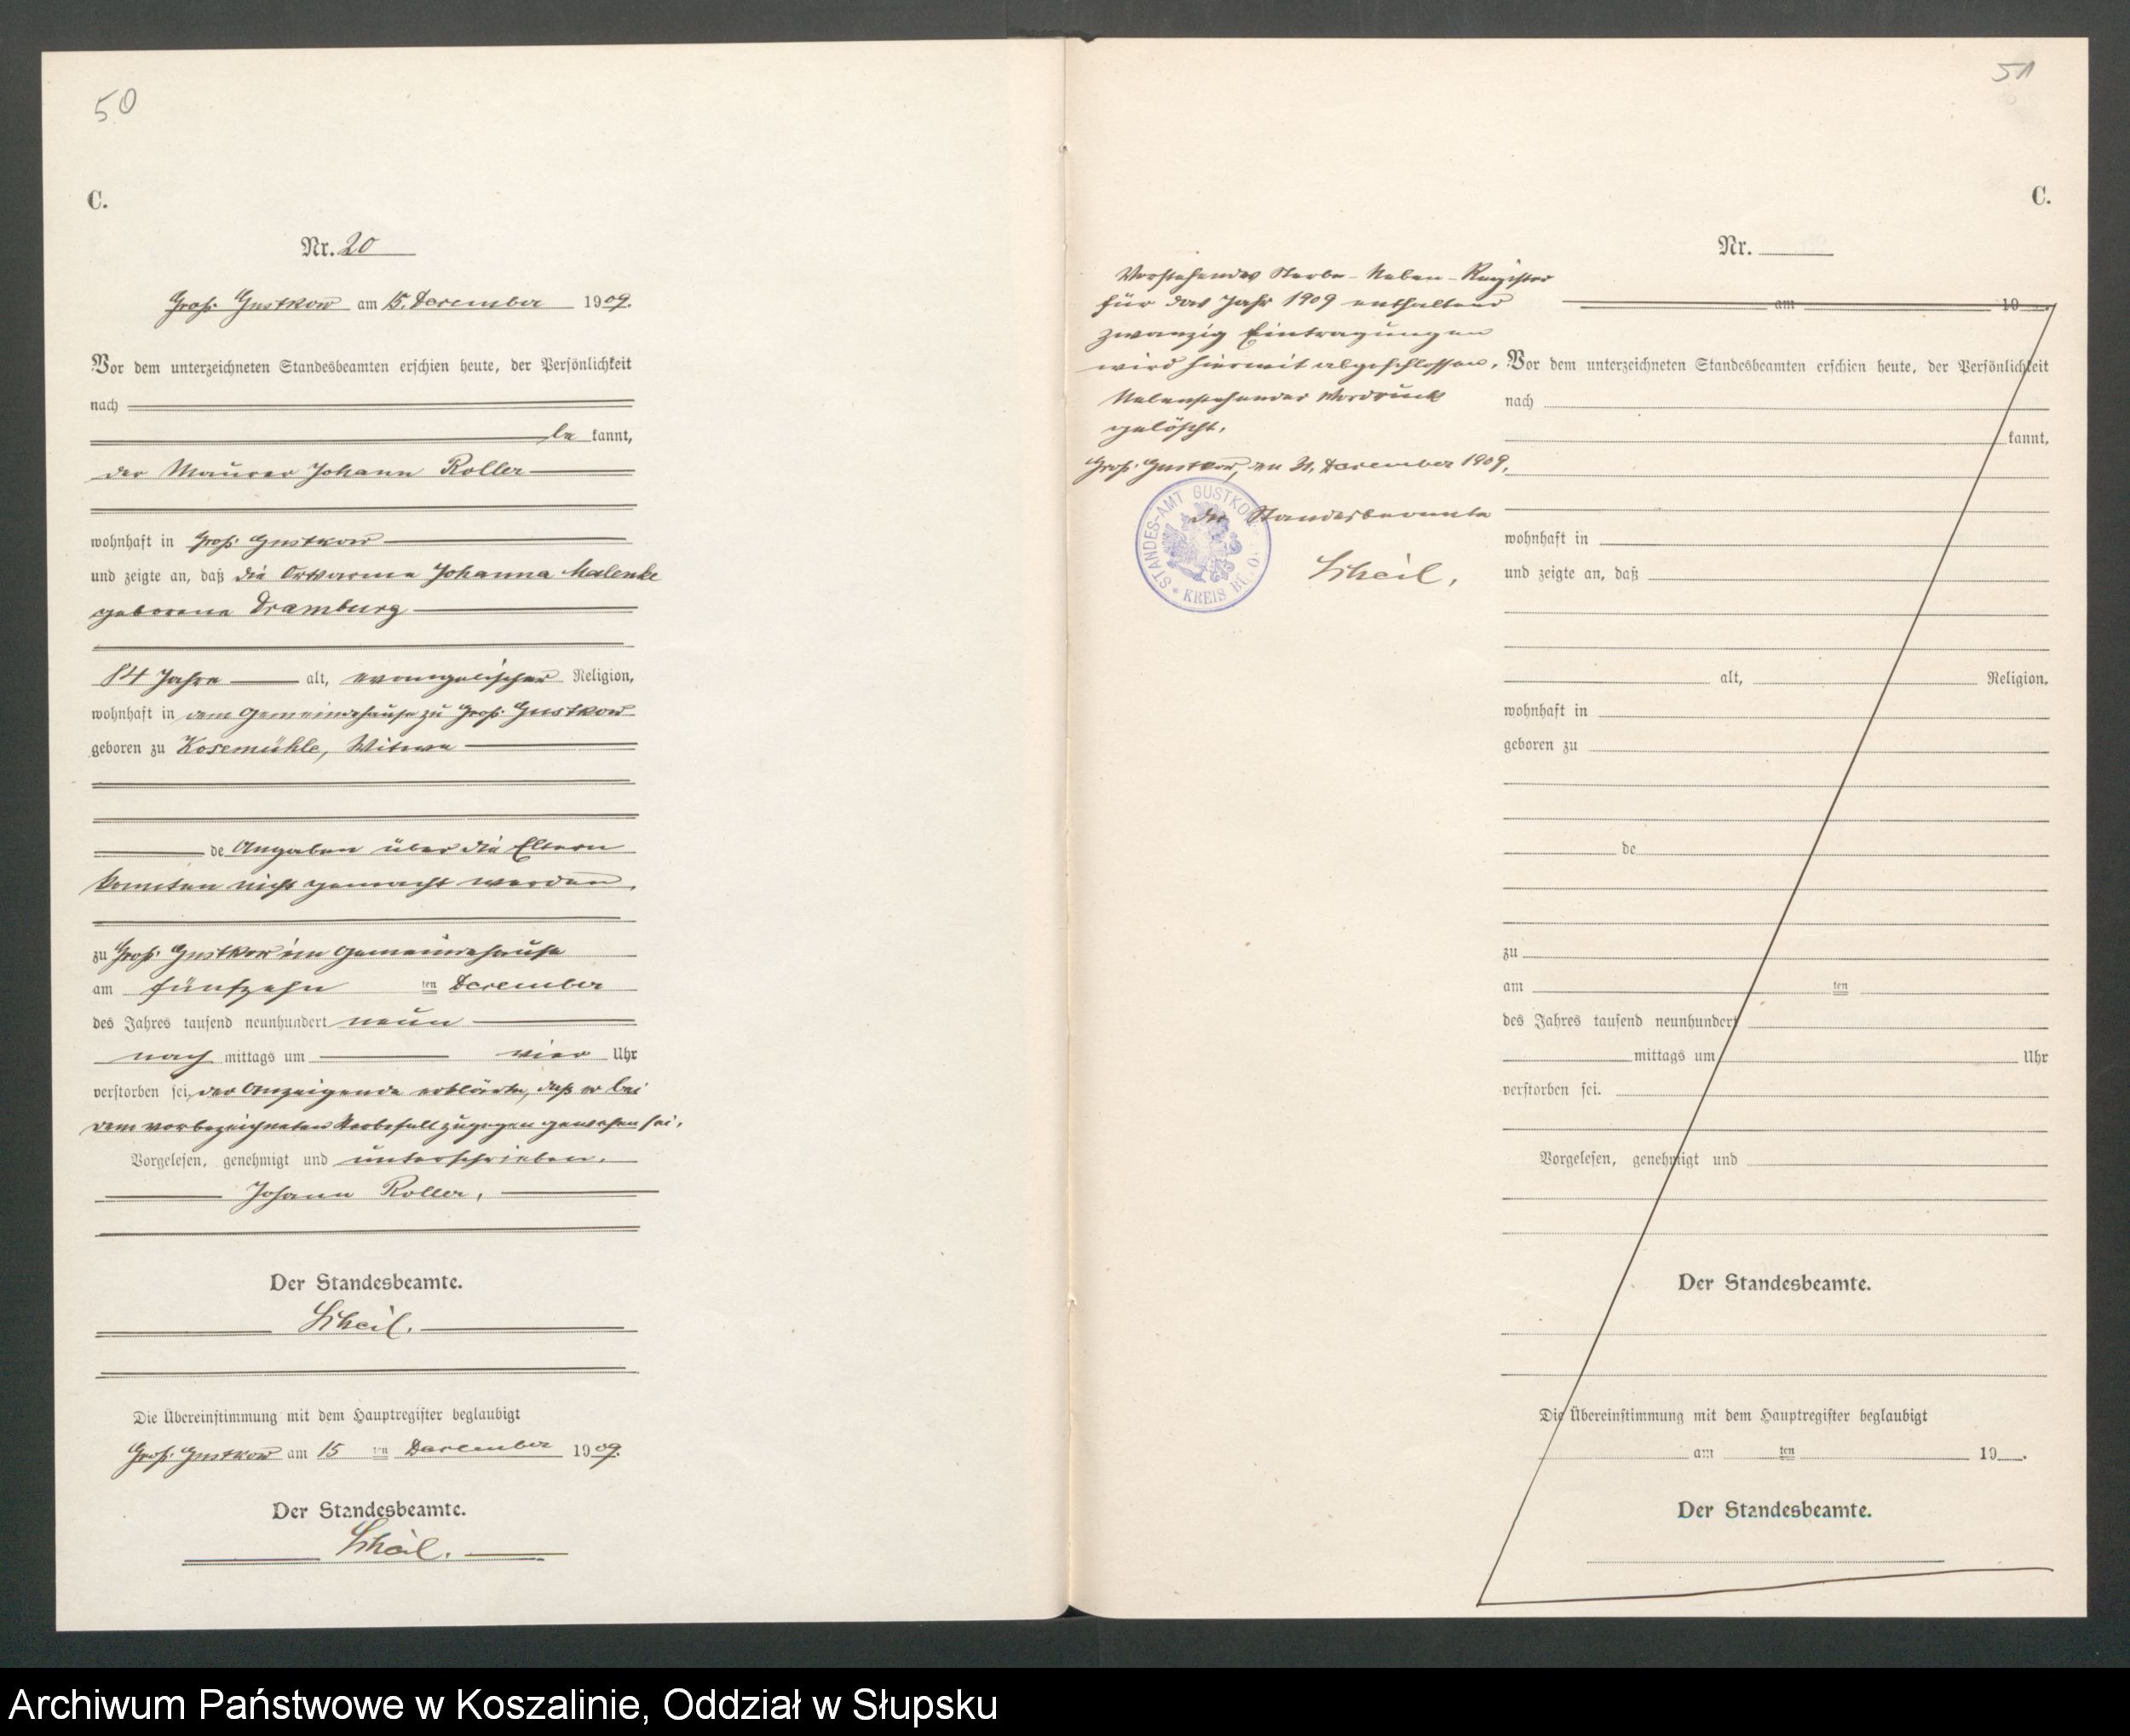 50
C.
Nr. 20
Groß Gustkow am 15. Dezember 1909.
Vor dem unterzeichneten Standesbeamten erschien heute, der Persönlichkeit
nach
be kannt,
der Maurer Johann Roller
wohnhaft in Groß Gustkow
und zeigte an, daß die Ortsarme Johanna Malenke
geborene Dramburg
84 Jahre alt, evangelischer Religion,
wohnhaft in dem Gemeindehause zu Groß Gustkow
geboren zu Kosemühle, Witwe
de Angaben über die Eltern
konnten nicht gemacht werden.
zu Groß Gustkow im Gemeindehause
am fünfzehn ten Dezember
des Jahres tausend neunhundert neun
nach mittags um vier Uhr
verstorben sei, der Anzeigende erklärte, daß er bei
dem vorbezeichneten Sterbefall zugegen gewesen sei.
Vorgelesen, genehmigt und unterschrieben.
Johann Roller.
Der Standesbeamte.
Die Übereinstimmung mit dem Hauptregister beglaubigt
Groß Gustkow am 15 ten Dezember 1909.
Der Standesbeamte.
51
C.
Nr.
Vorstehendes Sterbe-Neben-Register
für das Jahr 1909 enthaltend
zwanzig Eintragungen
wird hiermit abgeschlossen.
Nebenstehender Vordruck
gelöscht.
Groß Gustkow, den 31. Dezember 1909.
Der Standesbeamte
STANDES-AMT GUSTKOW
* KREIS BÜ
am 19
Vor dem unterzeichneten Standesbeamten erschien heute, der Persönlichkeit
nach
kannt,
wohnhaft in
und zeigte an, daß
alt, Religion,
wohnhaft in
geboren zu
de
zu
am ten
des Jahres tausend neunhundert
mittags um Uhr
verstorben sei.
Vorgelesen, genehmigt und
Der Standesbeamte.
Die Übereinstimmung mit dem Hauptregister beglaubigt
am ten 19 .
Der Standesbeamte.
Archiwum Państwowe w Koszalinie, Oddział w Słupsku